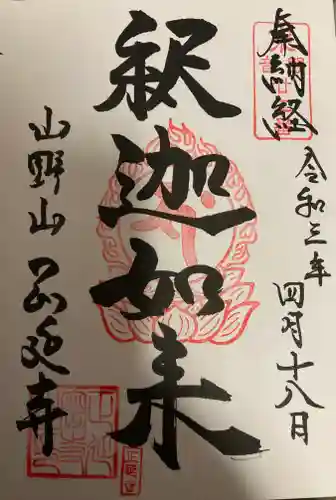 奉納経
令和三年
四月十八日
釈迦如来
山野山
寺